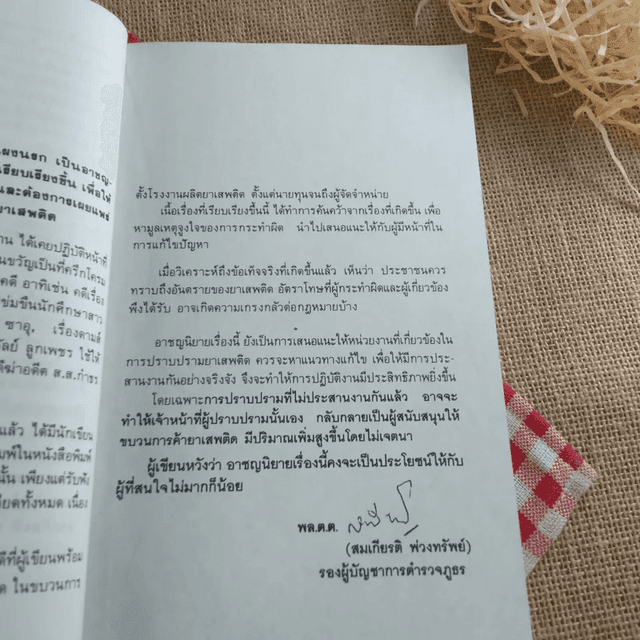 ผงนรก เป็นอาชญ-
เรียบเรียงขึ้น เพื่อให้
และต้องการเผยแพร่
ยาเสพติด
ได้เคยปฏิบัติหน้าที่
นขวัญเป็นที่ครึกโครม
คดี อาทิเช่น คดีเรื่อง
ข่มขืนนักศึกษาสาว
ซาอุ, เรื่องตามล่
ลูกเพชร ใช้ให้
อดีต ส.ส.กำธร
แล้ว ได้มีนักเขียน
พิมพ์ในหนังสือพิมพ์
นั้น เพียงแต่รับฟัง
ยดทั้งหมด เนื่อง
ดีที่ผู้เขียนพร้อม
ในขบวนการ
ตั้งโรงงานผลิตยาเสพติด ตั้งแต่นายทุนจนถึงผู้จัดจำหน่าย
เนื้อเรื่องที่เรียบเรียงขึ้นนี้ ได้ทำการค้นคว้าจากเรื่องที่เกิดขึ้น เพื่อ
หามูลเหตุจูงใจของการกระทำผิด นำไปเสนอแนะให้กับผู้มีหน้าที่ใน
การแก้ไขปัญหา
เมื่อวิเคราะห์ถึงข้อเท็จจริงที่เกิดขึ้นแล้ว เห็นว่า ประชาชนควร
ทราบถึงอันตรายของยาเสพติด อัตราโทษที่ผู้กระทำผิดและผู้เกี่ยวข้อง
พึงได้รับ อาจเกิดความเกรงกลัวต่อกฎหมายบ้าง
อาชญนิยายเรื่องนี้ ยังเป็นการเสนอแนะให้หน่วยงานที่เกี่ยวข้องใน
การปราบปรามยาเสพติด ควรจะหาแนวทางแก้ไข เพื่อให้มีการประ-
สานงานกันอย่างจริงจัง จึงจะทำให้การปฏิบัติงานมีประสิทธิภาพยิ่งขึ้น
โดยเฉพาะการปราบปรามที่ไม่ประสานงานกันแล้ว อาจจะ
ทำให้เจ้าหน้าที่ผู้ปราบปรามนั้นเอง กลับกลายเป็นผู้สนับสนุนให้
ขบวนการค้ายาเสพติด มีปริมาณเพิ่มสูงขึ้นโดยไม่เจตนา
ผู้เขียนหวังว่า อาชญนิยายเรื่องนี้คงจะเป็นประโยชน์ให้กับ
ผู้ที่สนใจไม่มากก็น้อย
พล.ต.ต.
(สมเกียรติ พ่วงทรัพย์)
รองผู้บัญชาการตำรวจภูธร